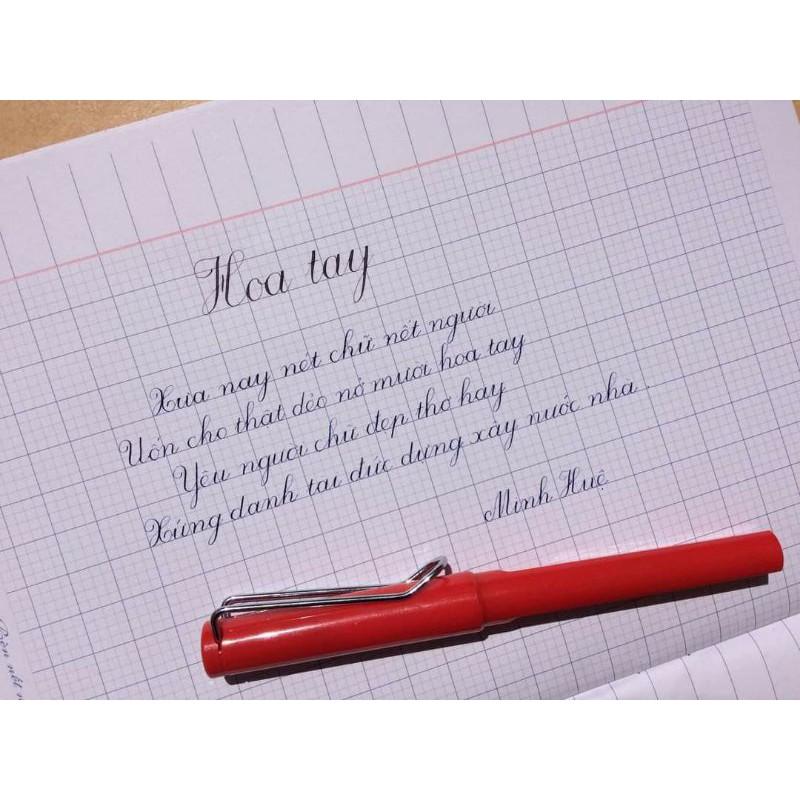 Hoa tay
Xưa nay nét chữ nết người
Uốn cho thật dẻo nở mười hoa tay
Yêu người chữ đẹp thơ hay
Xứng danh tài đức dựng xây nước nhà.
Minh Huệ